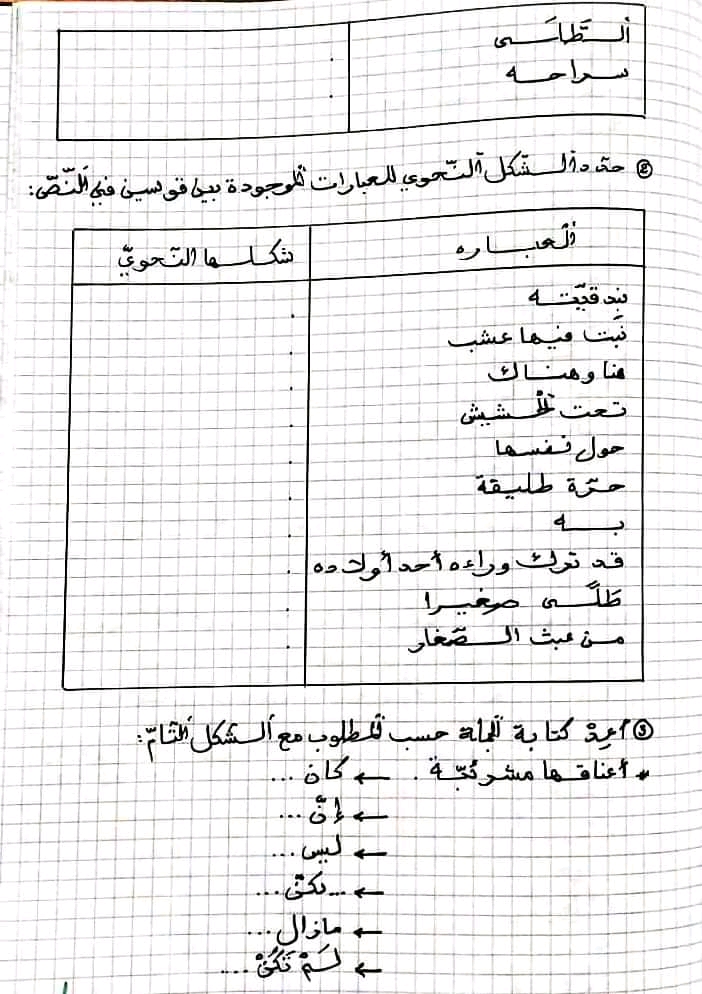 ٱلـتَّطـاسَـى
سـراحـه
② حدّد ٱلـشّكل ٱلنّحوي للعبارات ٱلموجودة بين قوسين في ٱلنّصّ:
ٱلعبـاره شكـلـها النّحويّ
بندقيّته
نبَت فيها عشب
هنا وهنـاك
تحت ٱلحشيش
حول نفسها
حرّة طليقة
بـه
قد ترك وراءه أحد أولاده
طَلًّـى صغيـرا
مـن عبث الـصّغار
③ أعِدْ كتابة ٱلجملة حسب ٱلمطلوب مع ٱلـشّكل ٱلتّامّ:
* أعناقـها مشرئبّة . ← كان ...
← إنّ ...
← ليس ...
← ...لكنّ ...
← مازال ...
← لَـمْ تَكُنْ ...